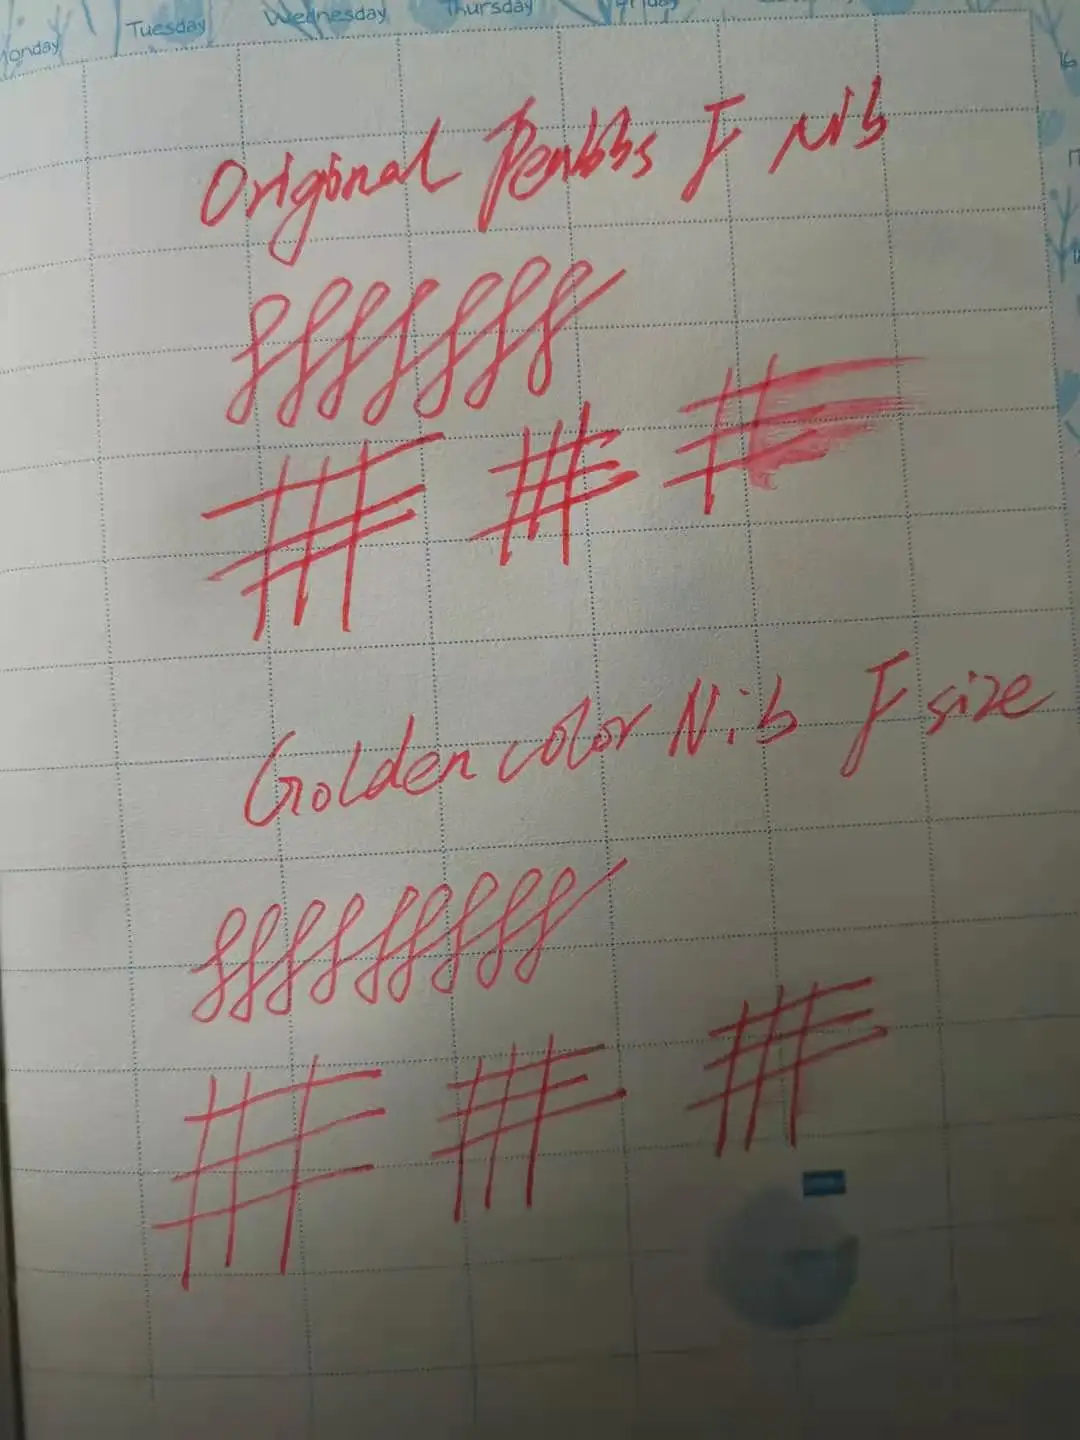 Monday Tuesday Wednesday Thursday Friday
16
17
Original Penbbs F Nib
Golden color Nib F size